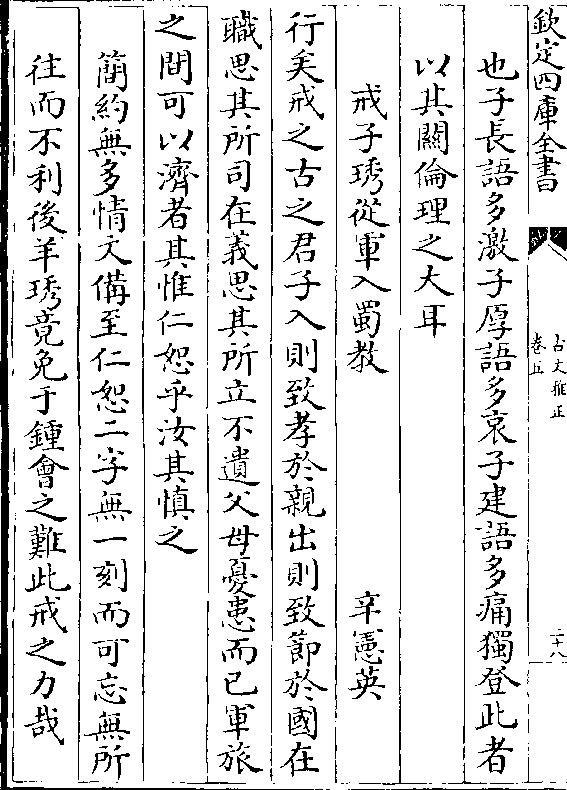 欽定四庫全書
古文雅正
卷五
二十八
也子長語多激子厚語多哀子建語多痛獨登此者
以其關倫理之大耳
戒子琇從軍入蜀教
辛憲英
行矣戒之古之君子入則致孝於親出則致節於國在
職思其所司在義思其所立不遺父母憂患而已軍旅
之間可以濟者其惟仁恕乎汝其慎之
簡約無多情文備至仁恕二字無一刻而可忘無所
往而不利後羊琇竟免于鍾會之難此戒之力哉